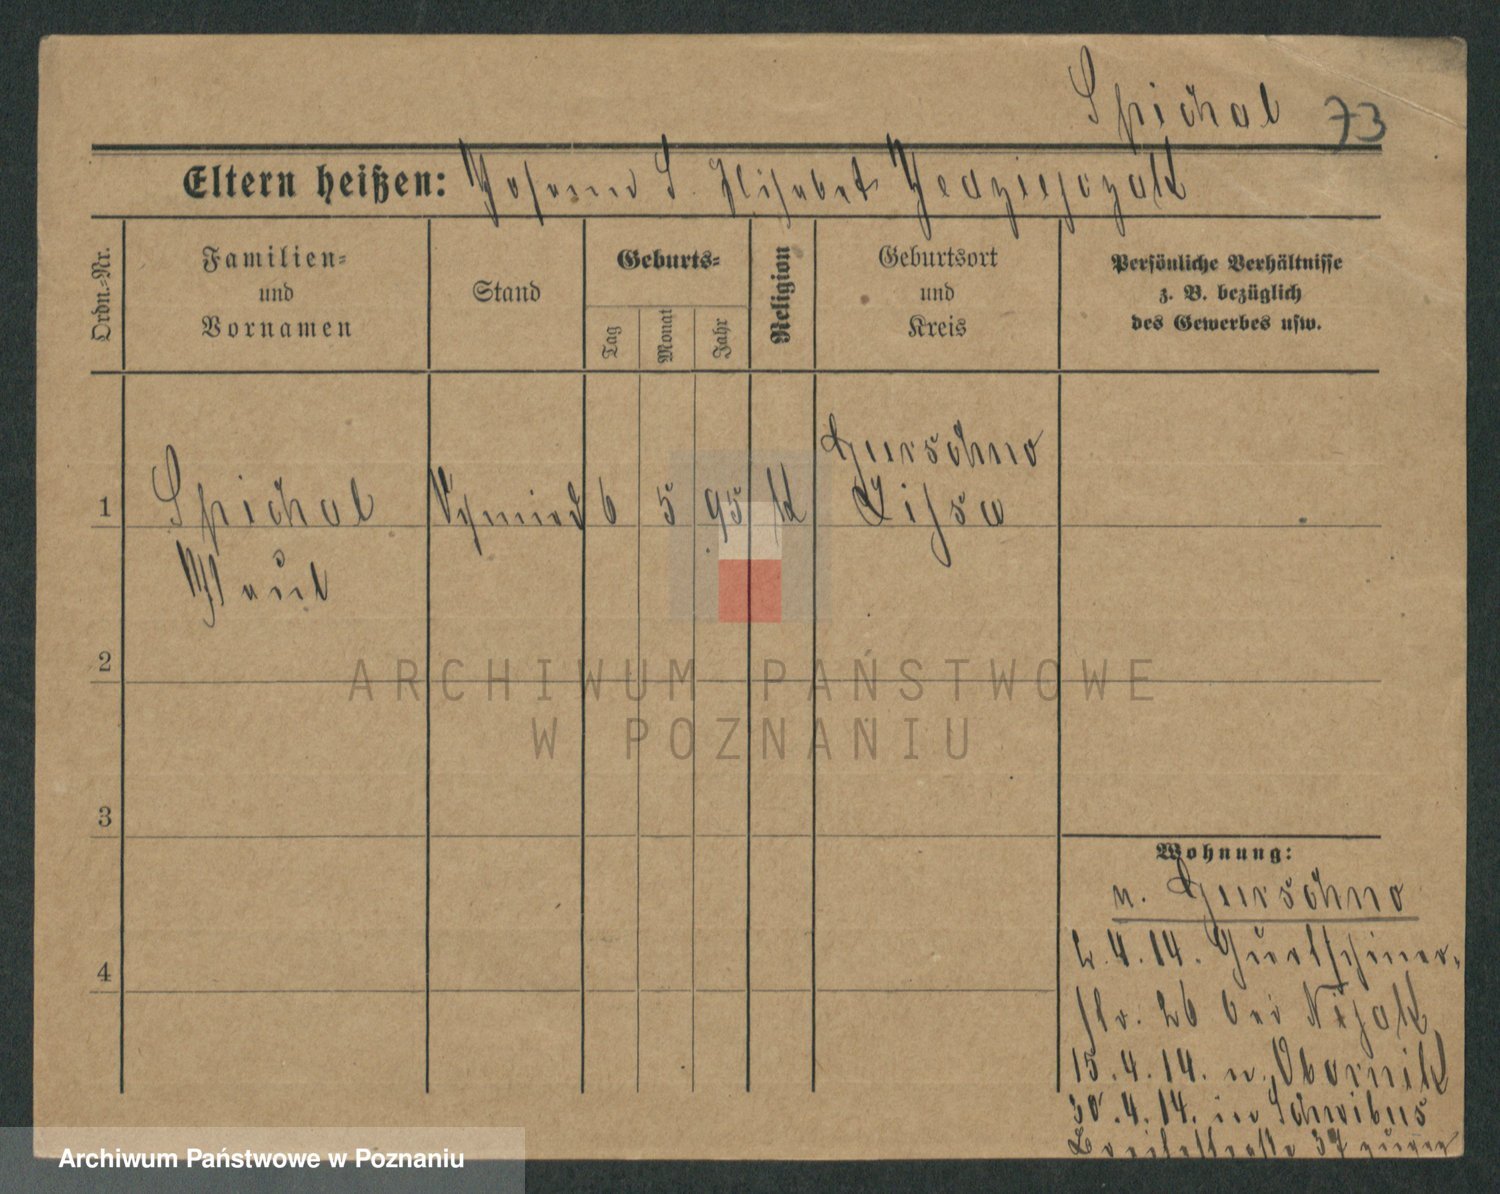 Spichal 73
Eltern heißen: Johann S. Elisabet
Ordn.-Nr.
Familien-
und
Vornamen
Stand
Geburts-
Tag
Monat
Jahr
Religion
Geburtsort
und
Kreis
Persönliche Verhältnisse
z. B. bezüglich
des Gewerbes usw.
1
Spichal
Paul
Schmied
6
5
95
K
Gurschno
Lissa
2
3
4
Wohnung:
n. Gurschno
2.4.14.
str. 26 bei
15.4.14. n. Obornik
30.4.14. in Schwibus
37 zurück
ARCHIWUM PAŃSTWOWE
W POZNANIU
Archiwum Państwowe w Poznaniu